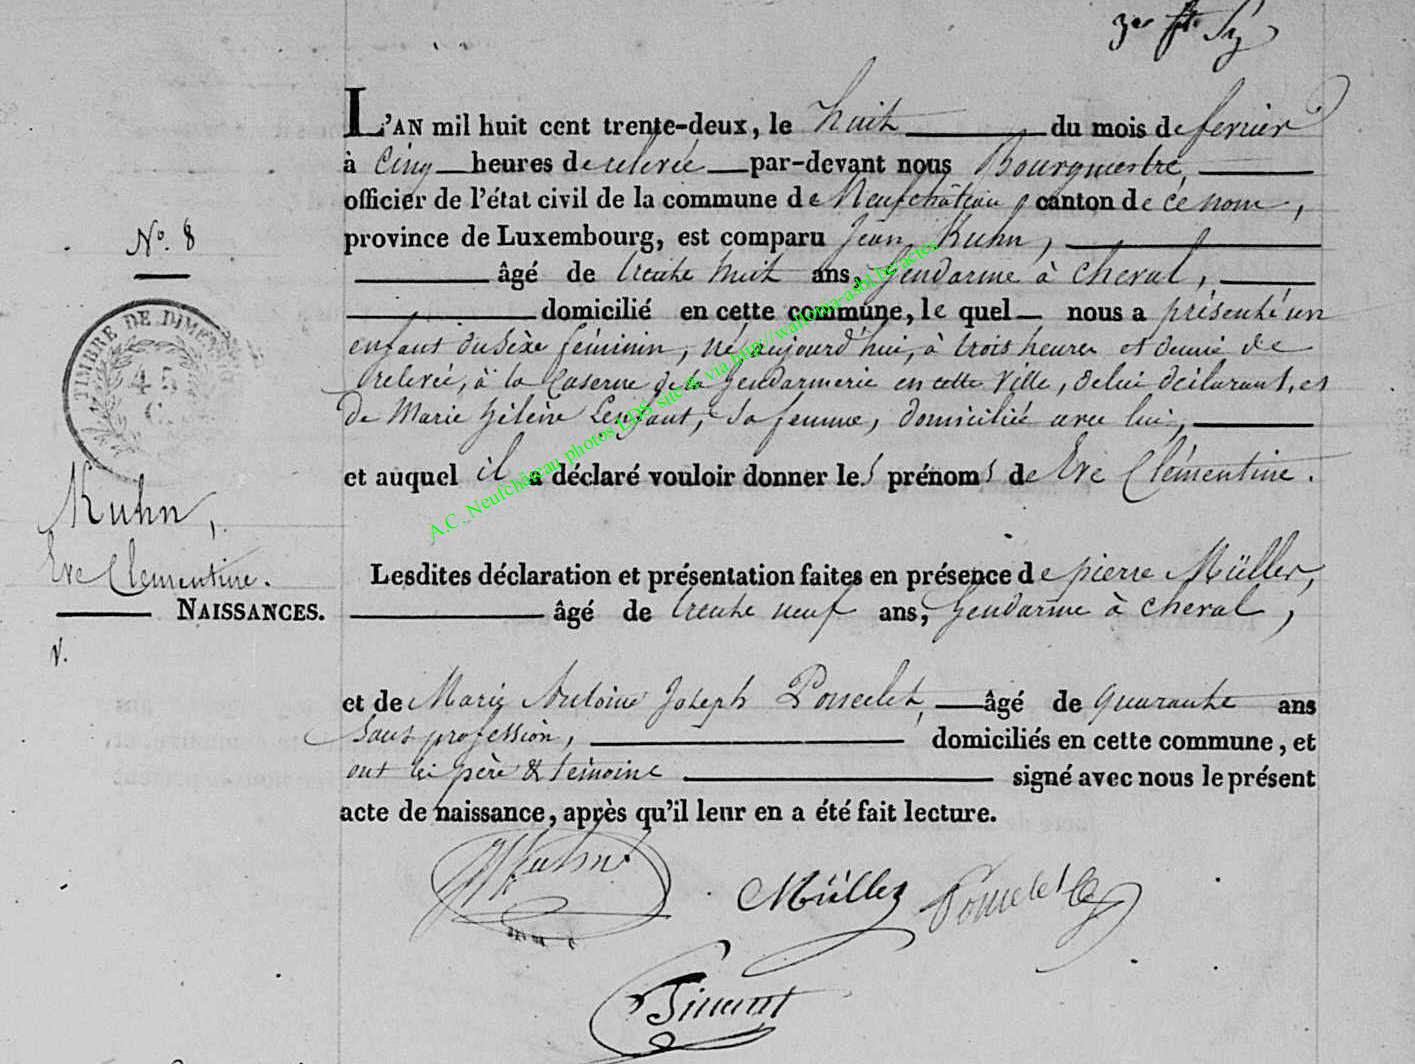 L'AN mil huit cent trente-deux, le huit du mois de fevrier
à cinq heures de relevée par-devant nous Bourgmestre,
officier de l'état civil de la commune de Neufchâteau, canton de ce nom,
province de Luxembourg, est comparu Jean Kuhn,
âgé de trente huit ans, Gendarme à cheval,
domicilié en cette commune, le quel nous a présenté un
enfant du sèxe féminin, né aujourd'hui, à trois heures et demie de
relevée, à la Caserne de la gendarmerie en cette ville, de lui déclarant, et
de Marie Hélène Lenfant, sa femme, domiciliée avec lui,
et auquel il a déclaré vouloir donner les prénoms de Eve Clémentine.
No. 8
TIMBRE DE DIMENSION
45
C.
Kuhn,
Eve Clementine.
NAISSANCES.
v.
Lesdites déclaration et présentation faites en présence de pierre Müller,
âgé de trente neuf ans, Gendarme à cheval,
et de Marie Antoine Joseph Poncelet, âgé de quarante ans
Sans profession, domiciliés en cette commune, et
ont les père & témoins signé avec nous le présent
acte de naissance, après qu'il leur en a été fait lecture.
Kuhn
Müller Poncelet
A.C_Neufchâteau photos LDS site & via http://wallonia-asbl.be actes